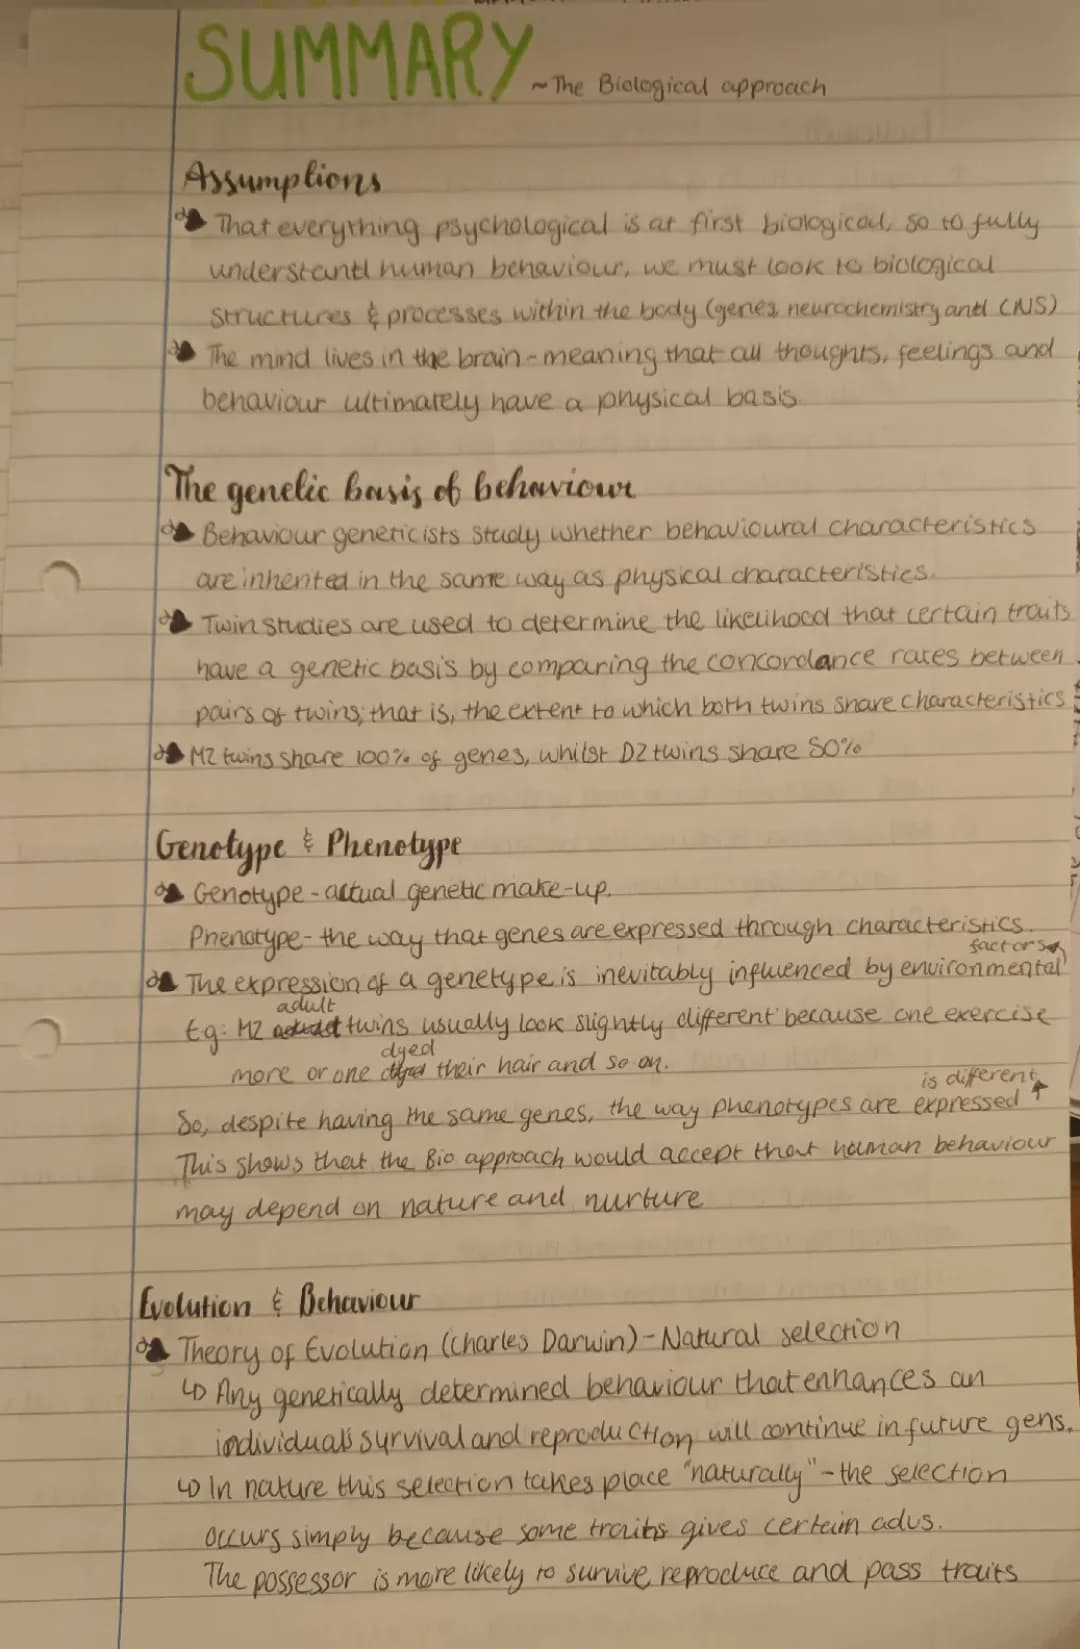 SUMMARY ~The Biological approach
Assumptions
That everything psychological is at first biological, so to fully
understand human behaviour, we must look to biological
structures & processes within the body (genes, neurochemistry and CNS)
The mind lives in the brain - meaning that all thoughts, feelings and
behaviour ultimately have a physical basis
The genetic basis of behaviour
Behaviour geneticists study whether behavioural characteristics
are inherited in the same way as physical characteristics.
Twin studies are used to determine the likelihood that certain traits
have a genetic basis by comparing the concordance rates between
pairs of twins; that is, the extent to which both twins share characteristics
MZ twins share 100% of genes, whilst DZ twins share 50%
Genotype & Phenotype
Genotype - actual genetic make-up.
Phenotype - the way that genes are expressed through characteristics.
The expression of a genetype is inevitably influenced by environmental factors
Eg: MZ adult twins usually look slightly different because one exercise
more or one dyed their hair and so on.
So, despite having the same genes, the way phenotypes are expressed is different
This shows that the Bio approach would accept that human behaviour
may depend on nature and nurture
Evolution & Behaviour
Theory of Evolution (Charles Darwin) - Natural selection
↳ Any genetically determined behaviour that enhances an
individual's survival and reproduction will continue in future gens.
↳ In nature this selection takes place "naturally" - the selection
occurs simply because some traits gives certain advs.
The possessor is more likely to survive, reproduce and pass traits